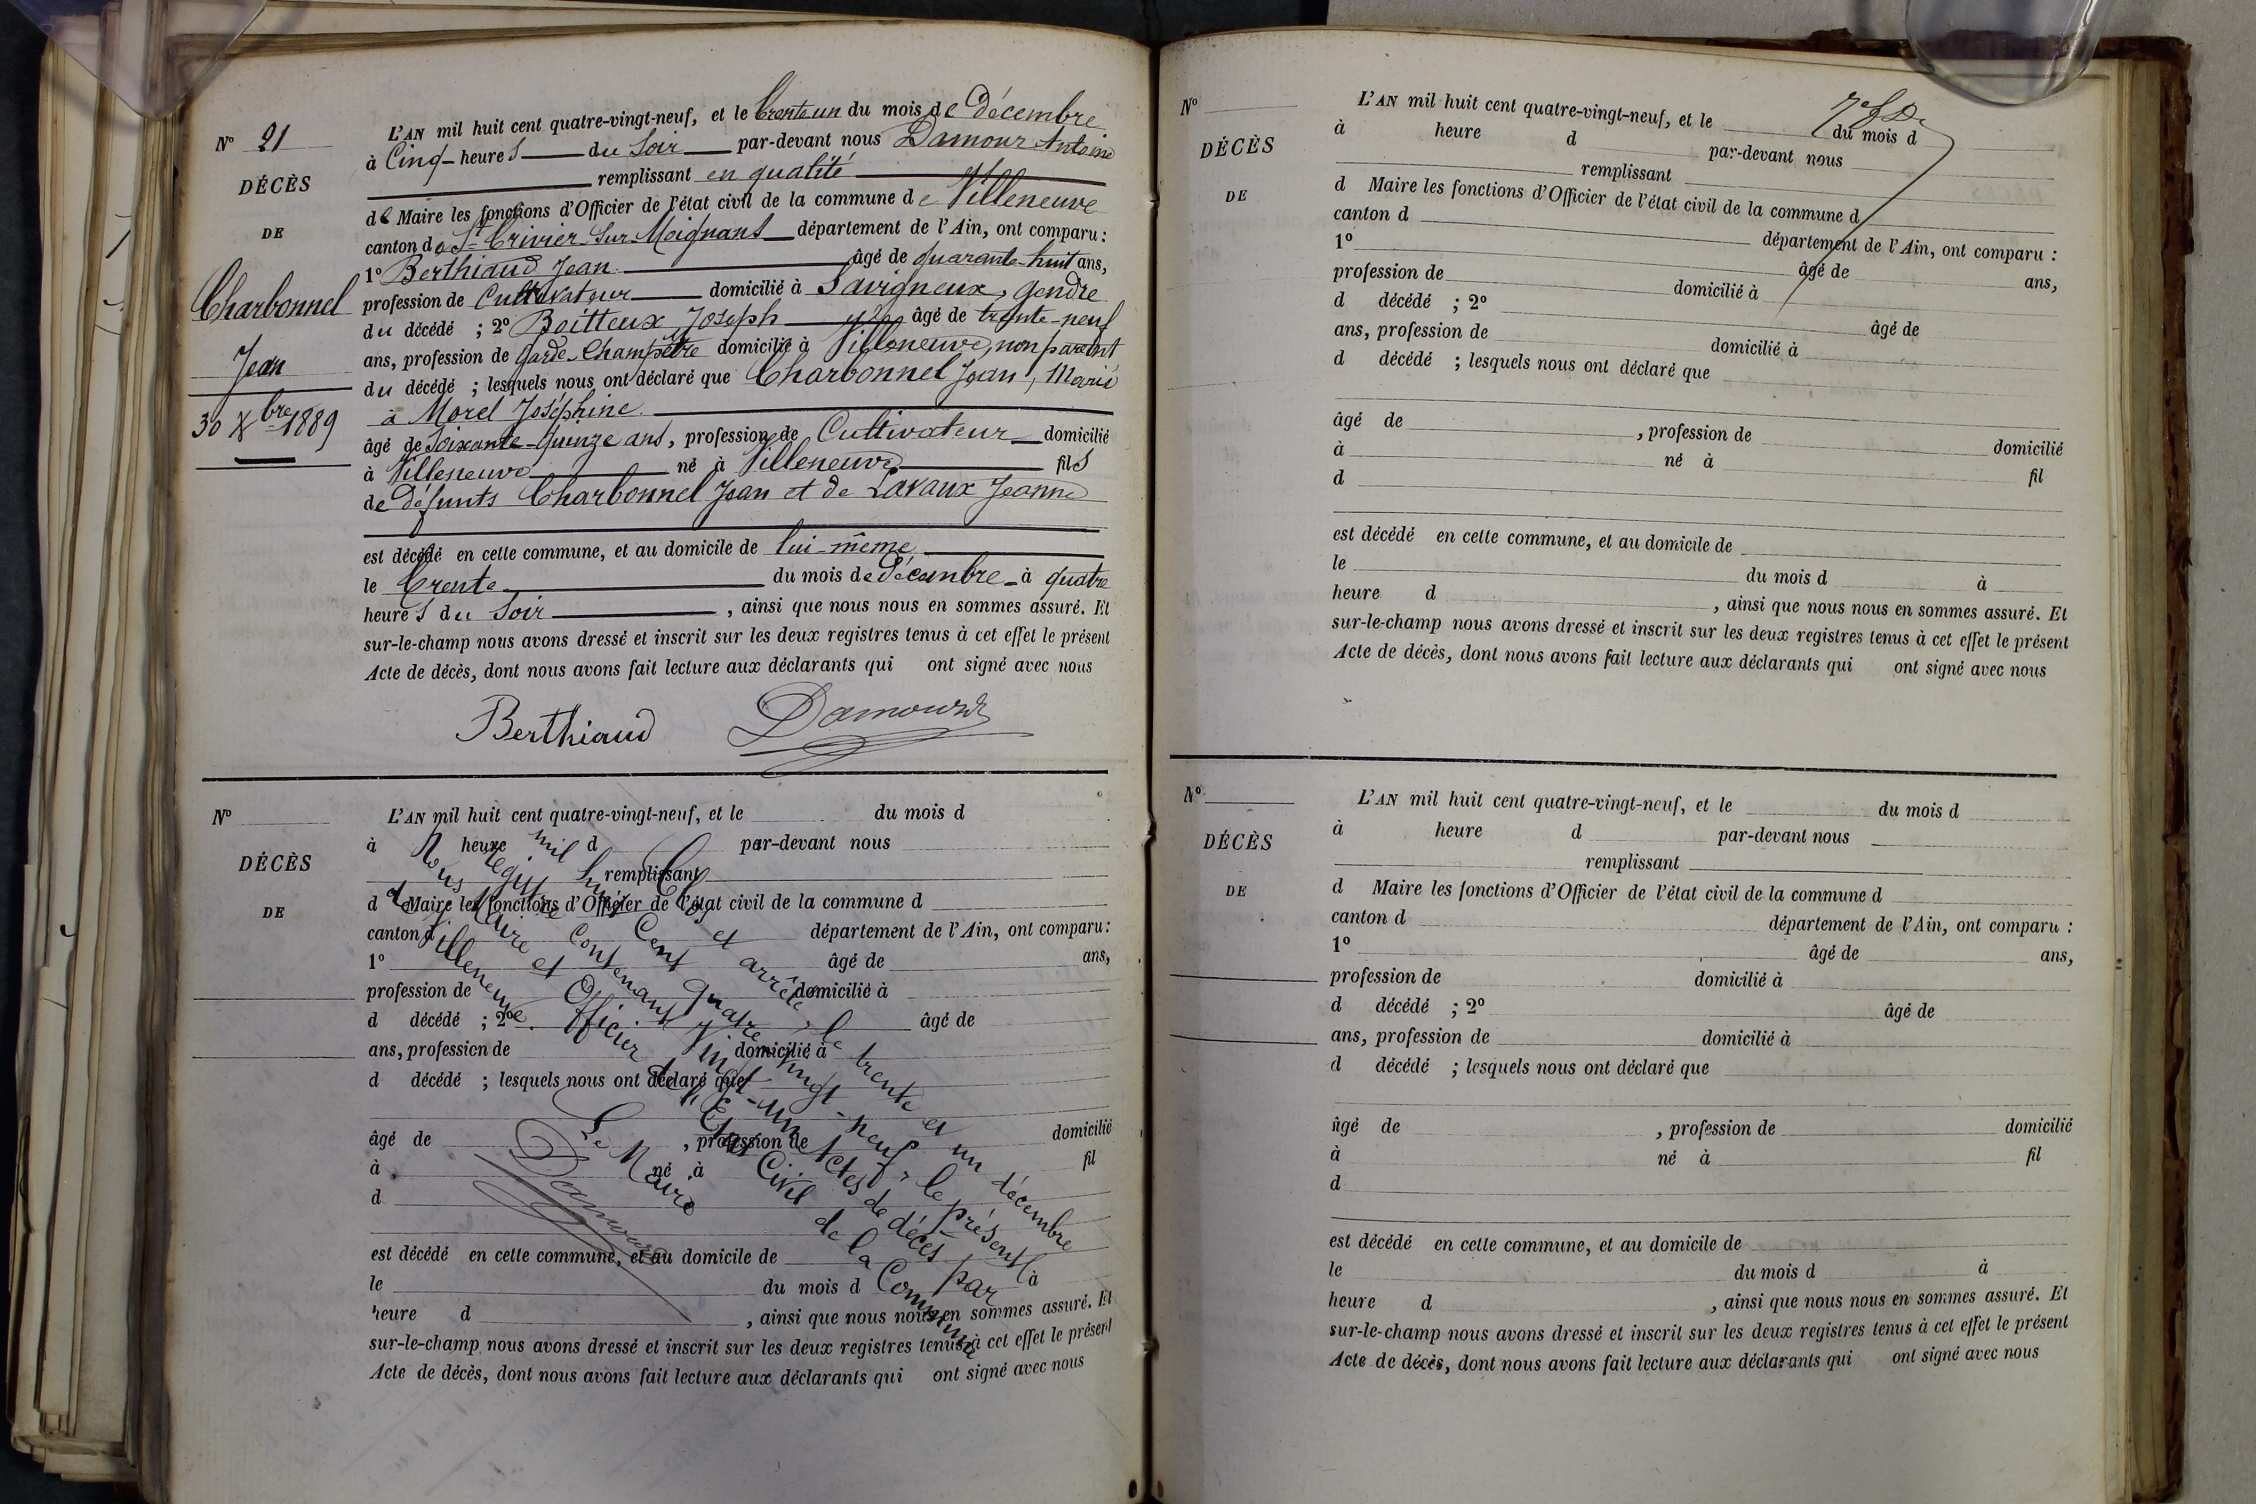 N° 21
DÉCÈS
DE
Charbonnel
Jean
30 Xbre 1889
L'AN mil huit cent quatre-vingt-neuf, et le trente un du mois de décembre
à Cinq heures du soir par-devant nous Damour Antoine
remplissant en qualité
de Maire les fonctions d'Officier de l'état civil de la commune de Villeneuve
canton de St-Trivier-Sur-Moignans département de l'Ain, ont comparu :
1° Berthiaud Jean âgé de quarante-huit ans,
profession de Cultivateur domicilié à Savigneux, gendre
du décédé ; 2° Boitteux Joseph âgé de trente-neuf
ans, profession de garde-Champêtre domicilié à Villeneuve, non parent
du décédé ; lesquels nous ont déclaré que Charbonnel Jean, Marié
à Morel Joséphine
âgé de soixante-quinze ans, profession de Cultivateur domicilié
à Villeneuve né à Villeneuve fils
de défunts Charbonnel Jean et de Lavaux Jeanne
est décédé en cette commune, et au domicile de lui-même
le trente du mois de décembre à quatre
heures du soir, ainsi que nous nous en sommes assuré. Et
sur-le-champ nous avons dressé et inscrit sur les deux registres tenus à cet effet le présent
Acte de décès, dont nous avons fait lecture aux déclarants qui ont signé avec nous
Berthiaud Damour
N°
DÉCÈS
DE
L'AN mil huit cent quatre-vingt-neuf, et le du mois d
à heure d par-devant nous
remplissant
d Maire les fonctions d'Officier de l'état civil de la commune d
canton d département de l'Ain, ont comparu :
1° âgé de ans,
profession de domicilié à
d décédé ; 2° âgé de
ans, profession de domicilié à
d décédé ; lesquels nous ont déclaré que
âgé de , profession de domicilié
à né à fil
d
est décédé en cette commune, et au domicile de
le du mois d à
heure d , ainsi que nous nous en sommes assuré. Et
sur-le-champ nous avons dressé et inscrit sur les deux registres tenus à cet effet le présent
Acte de décès, dont nous avons fait lecture aux déclarants qui ont signé avec nous
Clos et arrêté, le trente et un décembre
mil huit Cent quatre-vingt-neuf, le présent
registre contenant Vingt-un actes de décès par
Nous Maire et Officier de l'Etat Civil de la Commune
de Villeneuve.
Le Maire
Damour
N°
DÉCÈS
DE
L'AN mil huit cent quatre-vingt-neuf, et le du mois d
à heure d par-devant nous
remplissant
d Maire les fonctions d'Officier de l'état civil de la commune d
canton d département de l'Ain, ont comparu :
1° âgé de ans,
profession de domicilié à
d décédé ; 2° âgé de
ans, profession de domicilié à
d décédé ; lesquels nous ont déclaré que
âgé de , profession de domicilié
à né à fil
d
est décédé en cette commune, et au domicile de
le du mois d à
heure d , ainsi que nous nous en sommes assuré. Et
sur-le-champ nous avons dressé et inscrit sur les deux registres tenus à cet effet le présent
Acte de décès, dont nous avons fait lecture aux déclarants qui ont signé avec nous
N°
DÉCÈS
DE
L'AN mil huit cent quatre-vingt-neuf, et le du mois d
à heure d par-devant nous
remplissant
d Maire les fonctions d'Officier de l'état civil de la commune d
canton d département de l'Ain, ont comparu :
1° âgé de ans,
profession de domicilié à
d décédé ; 2° âgé de
ans, profession de domicilié à
d décédé ; lesquels nous ont déclaré que
âgé de , profession de domicilié
à né à fil
d
est décédé en cette commune, et au domicile de
le du mois d à
heure d , ainsi que nous nous en sommes assuré. Et
sur-le-champ nous avons dressé et inscrit sur les deux registres tenus à cet effet le présent
Acte de décès, dont nous avons fait lecture aux déclarants qui ont signé avec nous